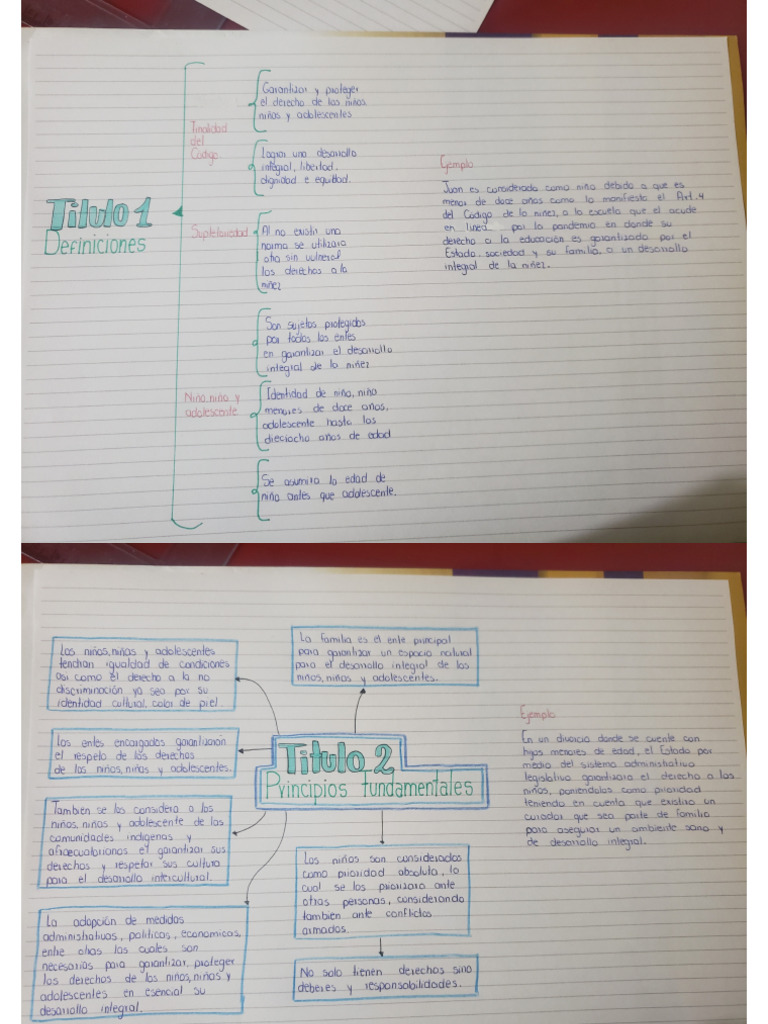 Titulo 1
Definiciones
Finalidad
del
Codigo
Garantizar y proteger
el derecho de los niños
niñas y adolescentes
Lograr una desarrollo
integral, libertad,
dignidad e equidad.
Supletoriedad
Al no existir una
norma se utilizara
otra sin vulnerar
los derechos a la
niñez
Nino, niña y
adolescente
Son sujetos protegidos
por todos los entes
en garantizar el desarrollo
integral de la niñez
Identidad de niño, niña
menores de doce años,
adolescente hasta los
dieciocho años de edad
Se asumira la edad de
niño antes que adolescente.
Ejemplo
Juan es considerado como niño debido a que es
menor de doce años como lo manifiesta el Art. 4
del Codigo de la niñez, a la escuela que el acude
en linea por la pandemia en donde su
derecho a la educación es garantizado por el
Estado, sociedad y su familia, a un desarrollo
integral de la niñez.
Titulo 2
Principios fundamentales
Los niños, niñas y adolescentes
tendran igualdad de condiciones
asi como el derecho a la no
discriminación ya sea por su
identidad cultural, color de piel.
La familia es el ente principal
para garantizar un espacio natural
para el desarrollo integral de los
niños, niñas y adolescentes.
Los entes encargados garantizarán
el respeto de los derechos
de los niños, niñas y adolescentes.
Tambien se los considera a los
niños, niñas y adolescente de las
comunidades indigenas y
afroecuatorianos el garantizar sus
derechos y respetar sus cultura
para el desarrollo intercultural.
La adopción de medidas
administrativas, politicas, economicas,
entre otras las cuales son
necesarias para garantizar, proteger
los derechos de los niños, niñas y
adolescentes en esencial su
desarrollo integral.
Los niños son considerados
como prioridad absoluta, la
cual se los priorizara ante
otras personas, considerando
tambien ante conflictos
armados.
No solo tienen derechos sino
deberes y responsabilidades.
Ejemplo
En un divorcio donde se cuente con
hijos menores de edad, el Estado por
medio del sistema administrativo
legislativo garantizara el derecho a los
niños, poniendolos como prioridad
teniendo en cuenta que existira un
curador que sea parte de familia
para asegurar un ambiente sano y
de desarrollo integral.